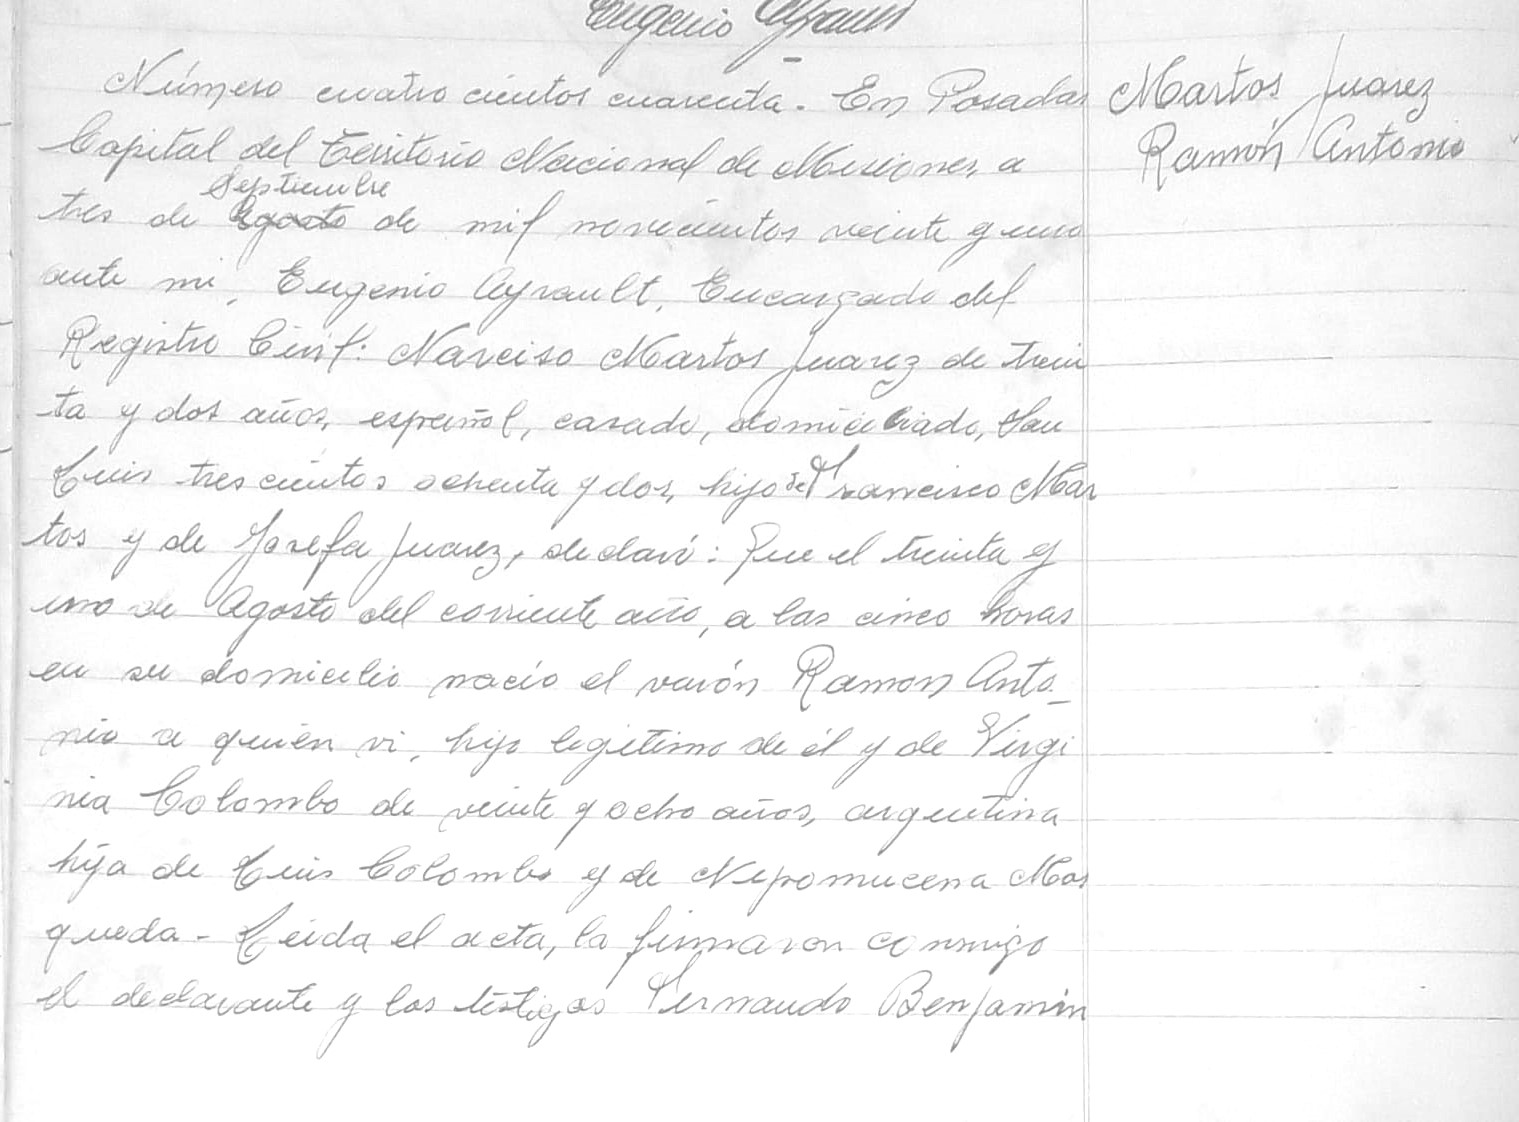 Eugenio Ayrault
Número cuatro cientos cuarenta. En Posadas
Capital del Territorio Nacional de Misiones, a
Septiembre
tres de Agosto de mil novecientos veinte y uno
ante mi, Eugenio Ayrault, Encargado del
Registro Civil: Narciso Martos Juarez de trein
ta y dos años, español, casado, domiciliado, San
Luis tres cientos ochenta y dos, hijo de Francisco Mar
tos y de Josefa Juarez, declaró: Que el treinta y
uno de Agosto del corriente año, a las cinco horas
en su domicilio nació el varón Ramon Anto_
nio a quién vi, hijo legítimo de él y de Virgi
nia Colombo de veinte y ocho años, argentina
hija de Luis Colombo y de Nepomucena Mos
queda - Leida el acta, la firmaron conmigo
el declarante y los testigos Fernando Benjamin
Martos Juarez
Ramón Antonio